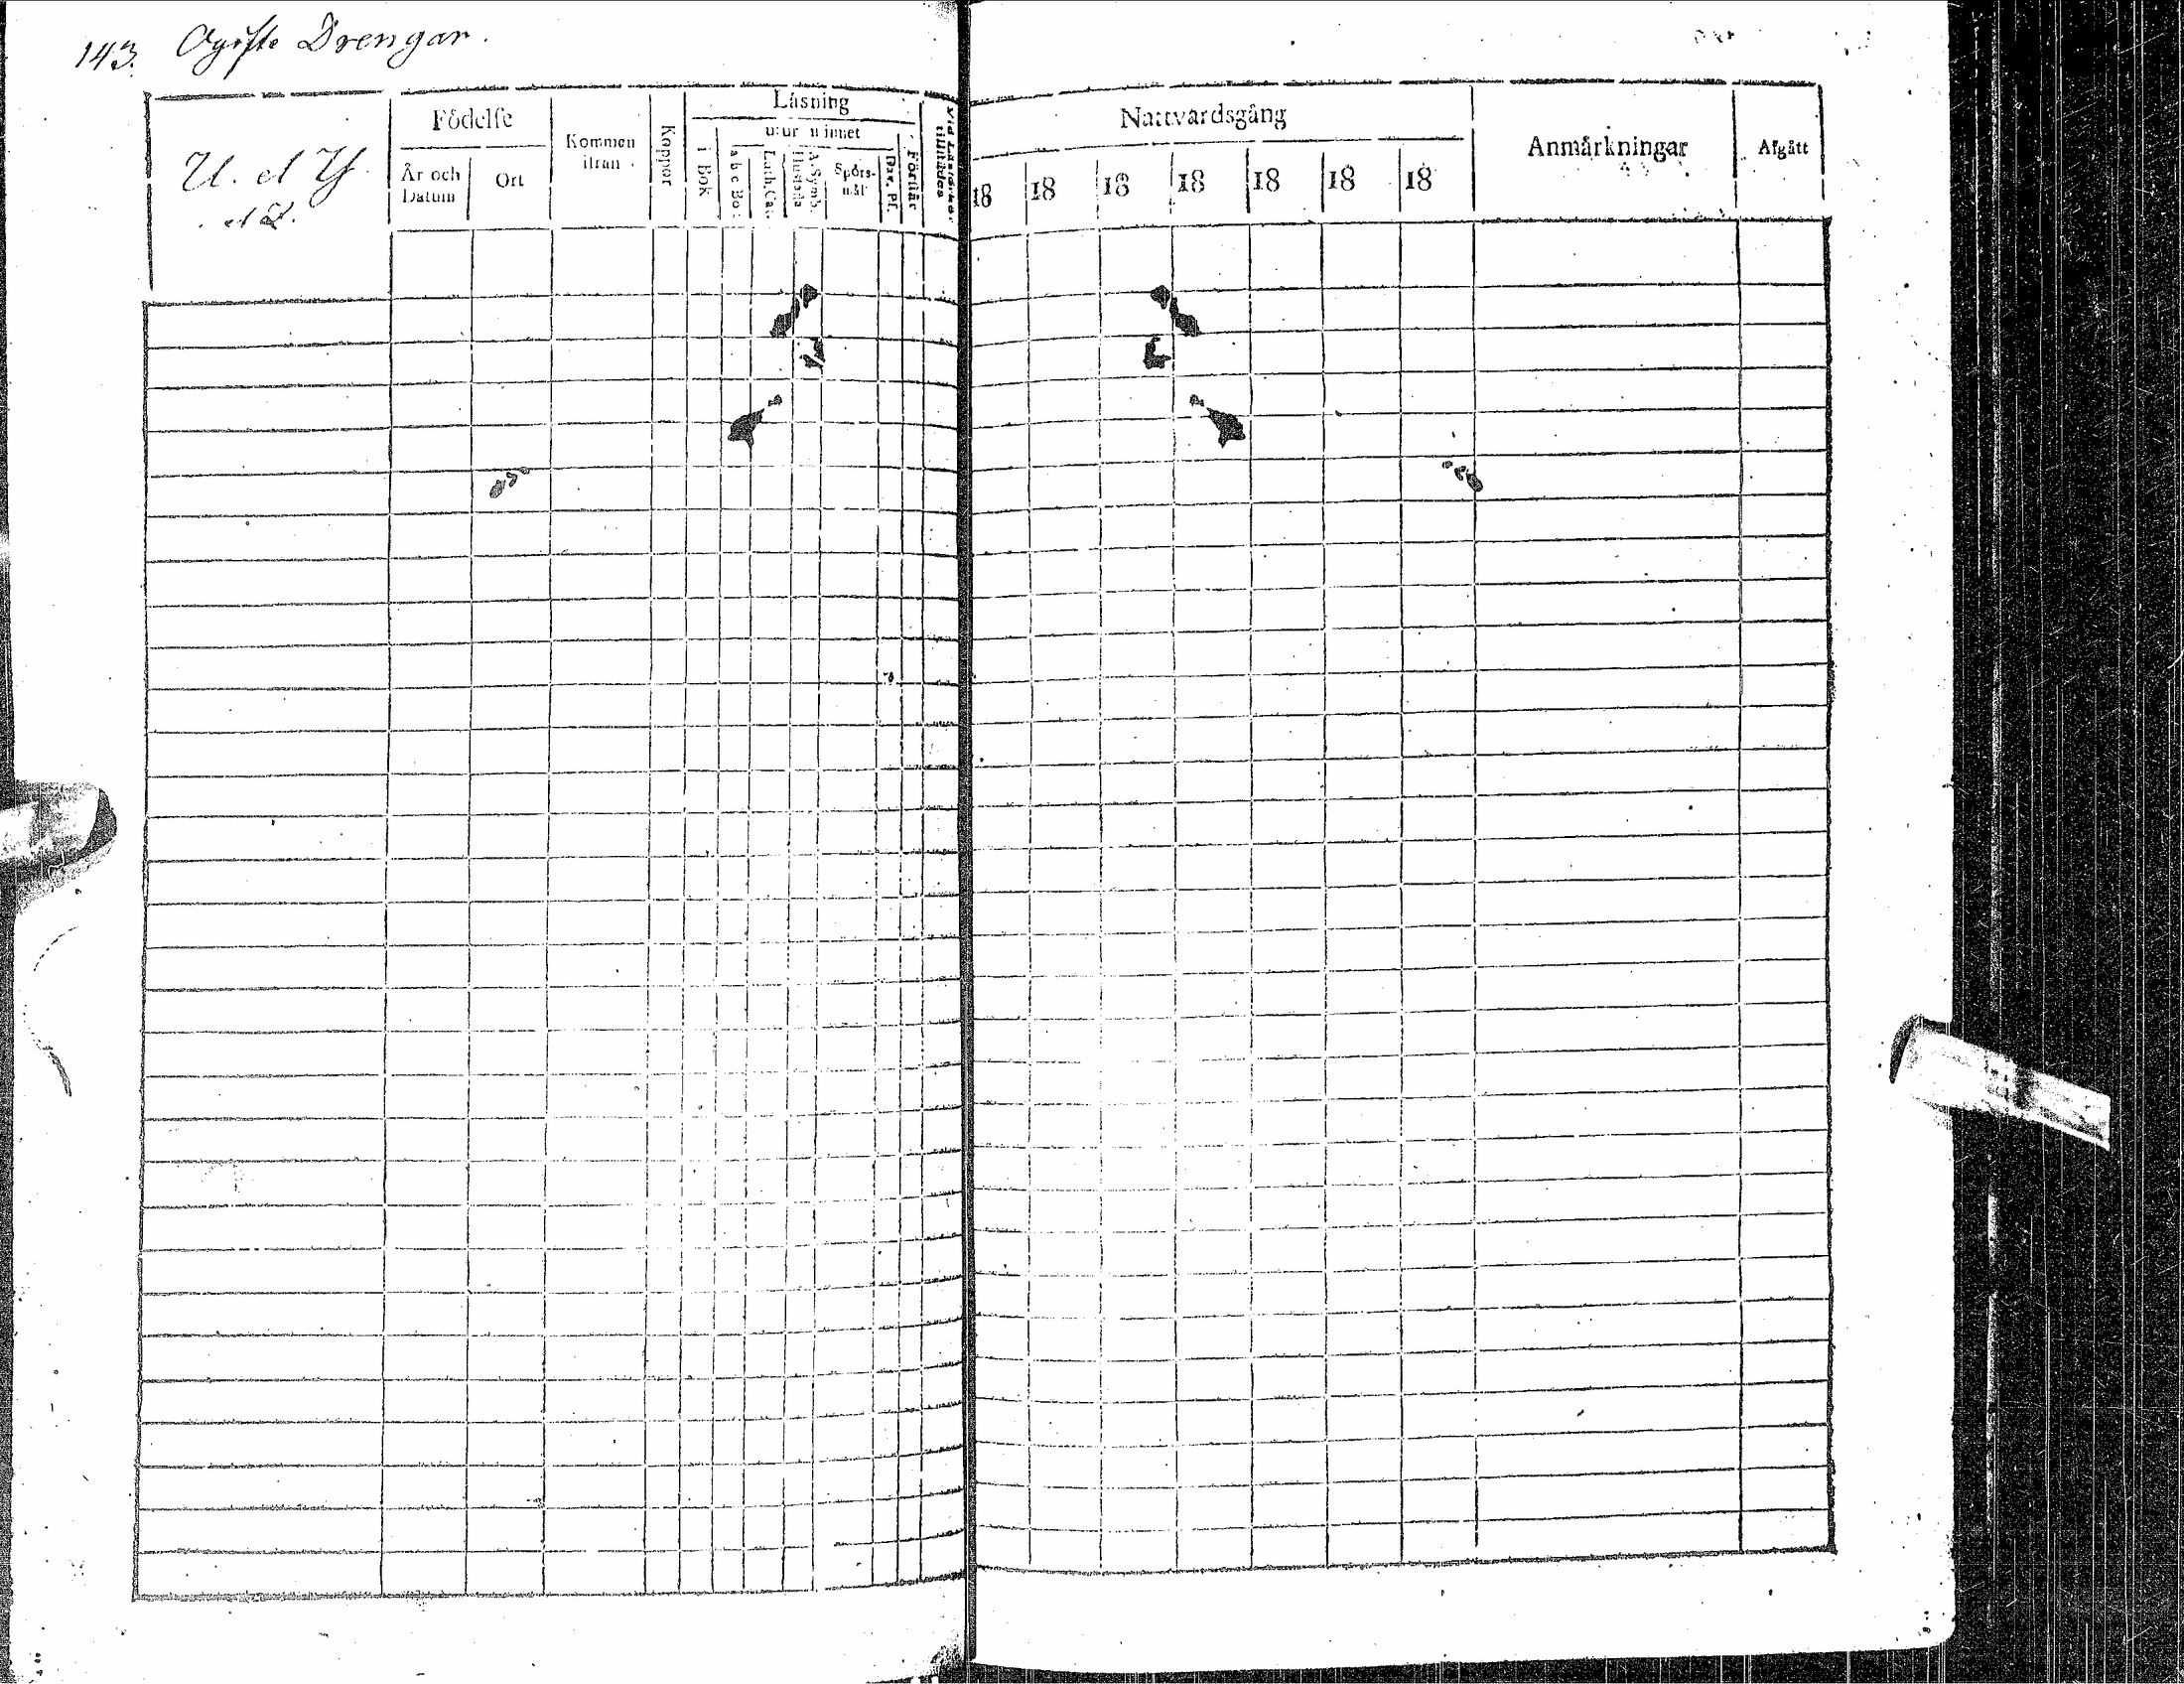 143. Ogifte Drengar.
U. et Y.
et Z.
Födelse
År och Datum
Ort
Kommen ifrån
Koppor
Läsning
i Bok
utur minnet
a b c Bok
Luth. Cat.
A. Symb.
Hustafla
Spörs-mål
Dav. Ps.
Förstår
Vid Läsförhör tillstädes
Nattvardsgång
18 18 18 18 18 18 18
Anmärkningar
Afgått